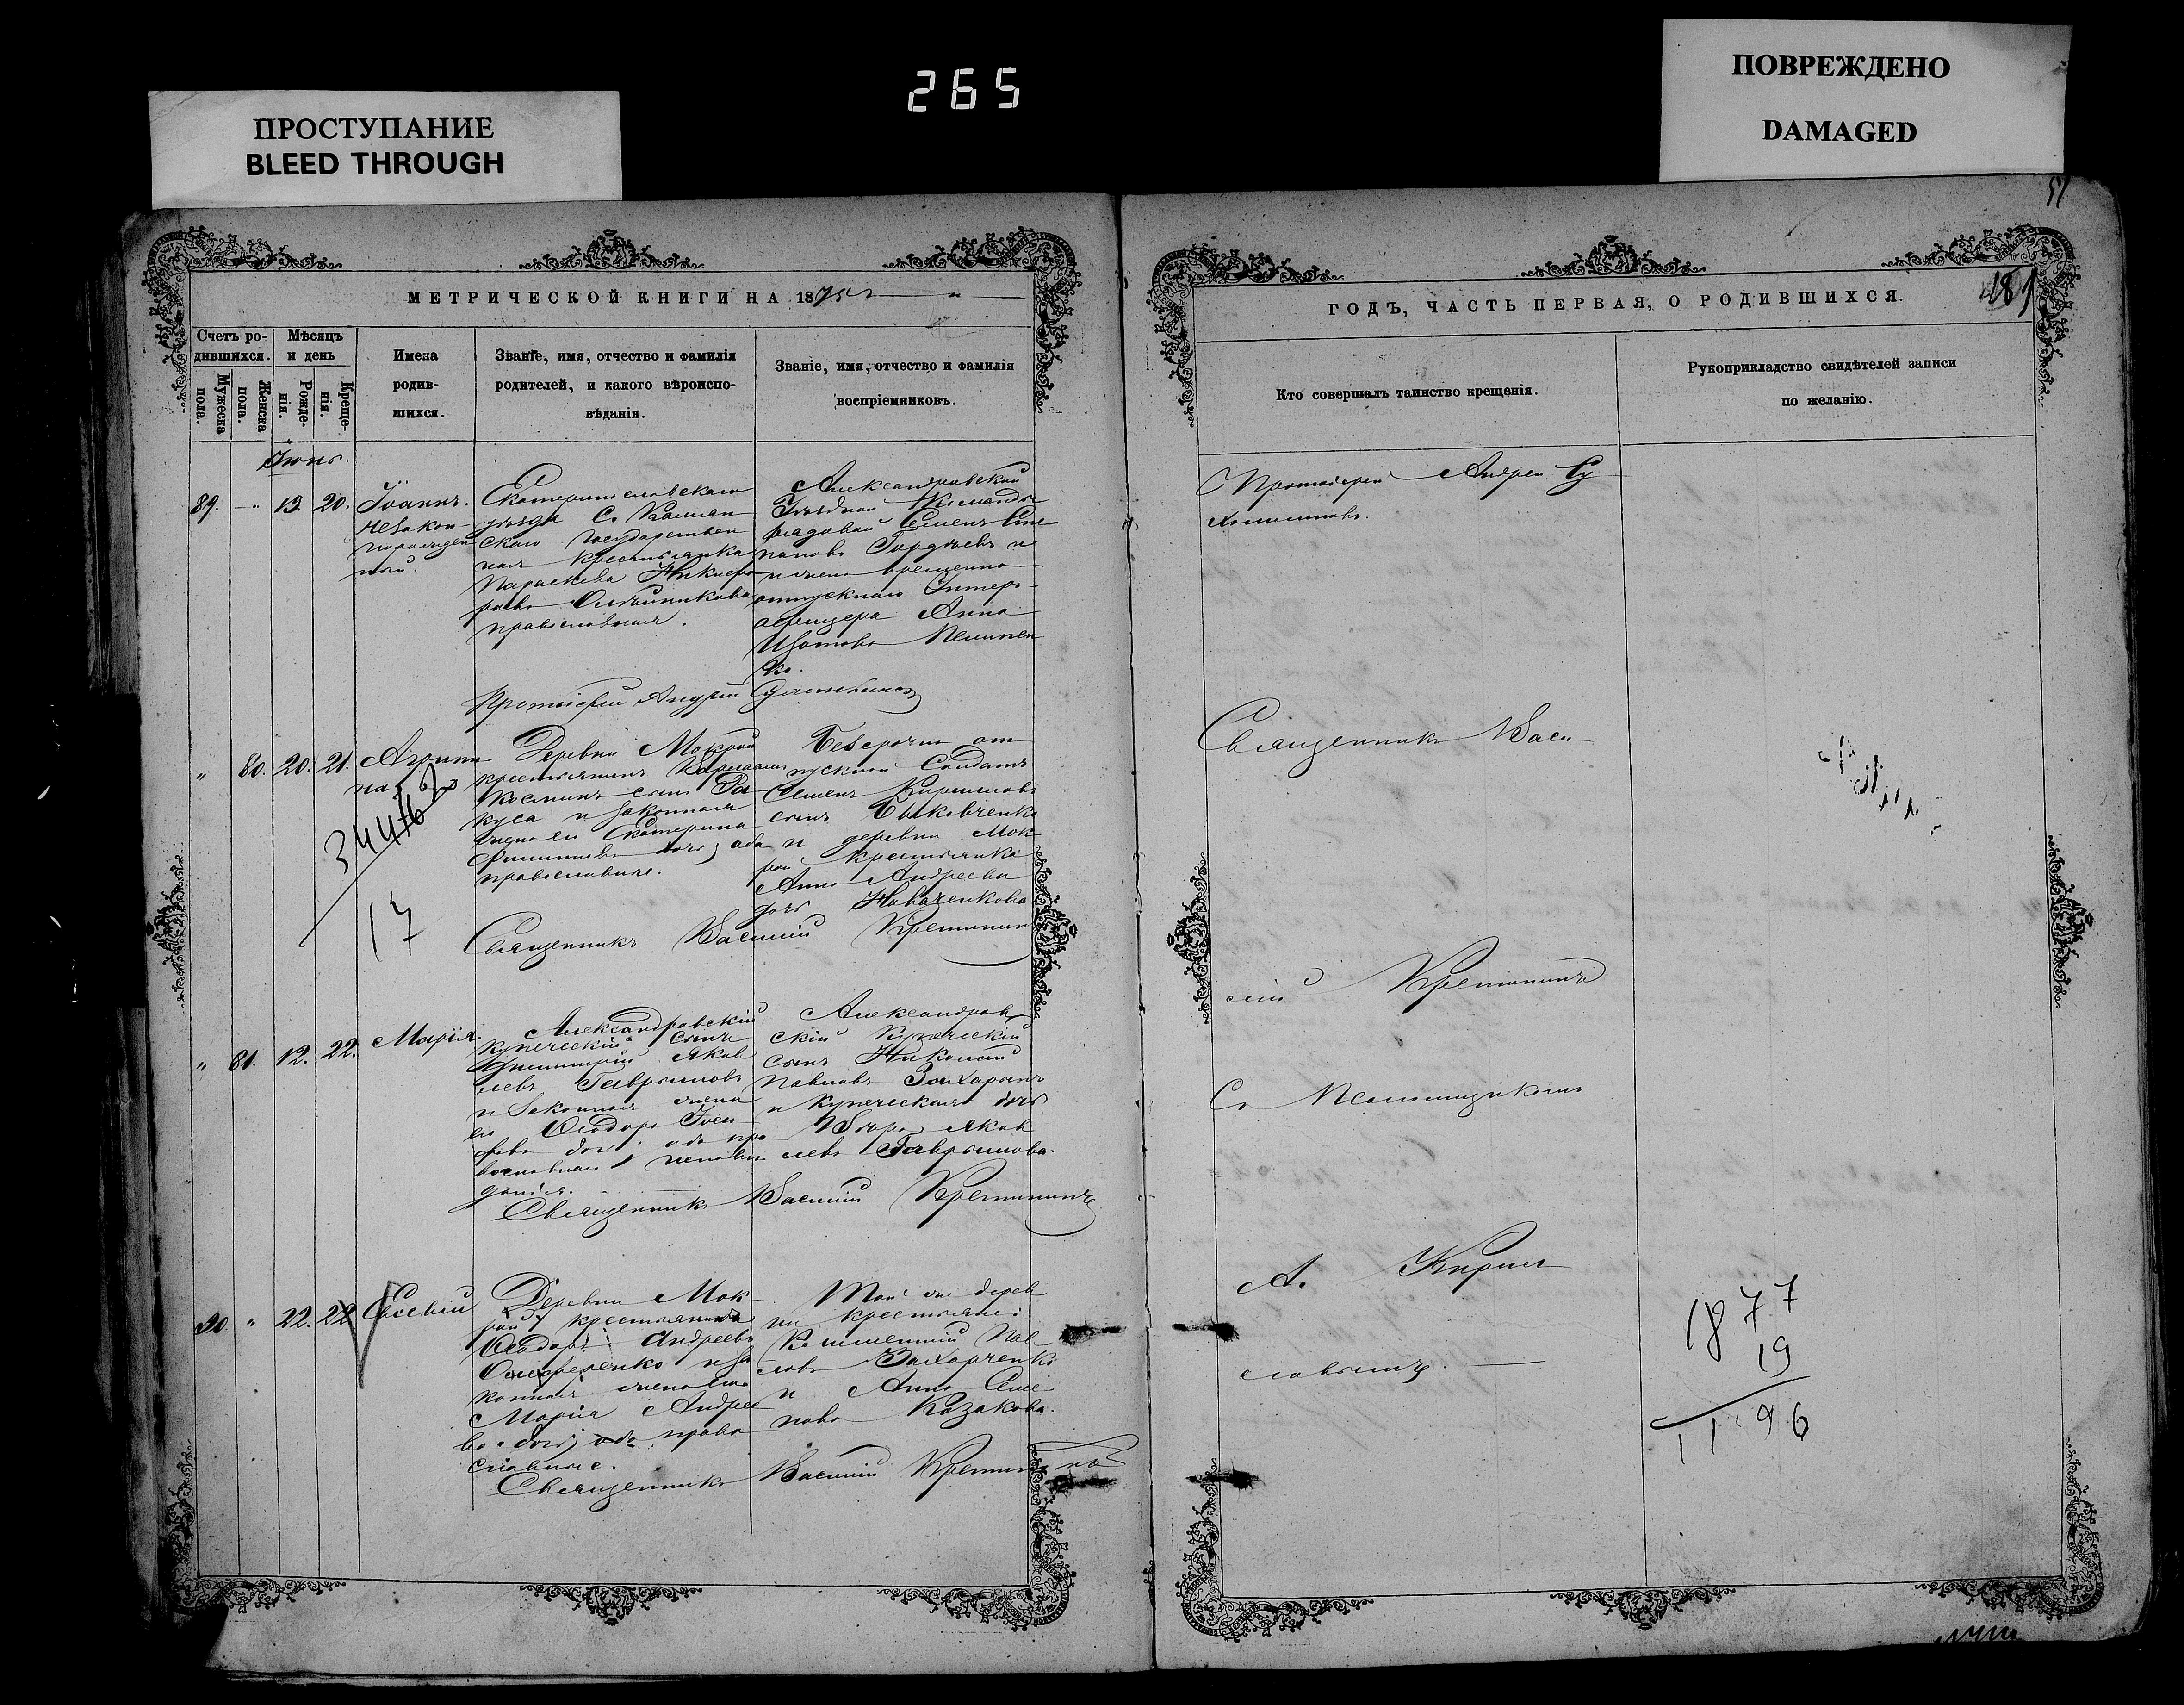 265
ПРОСТУПАНИЕ
BLEED THROUGH
ПОВРЕЖДЕНО
DAMAGED
51
МЕТРИЧЕСКОЙ КНИГИ НА 187
Счетъ ро-
дившихся.
Мужеска
пола.
Женска
пола.
Мѣсяцъ
и день
Рожде-
нія.
Креще-
нія.
Имена
родив-
шихся.
Званіе, имя, отчество и фамилія
родителей, и какого вѣроиспо-
вѣданія.
Званіе, имя, отчество и фамилія
воспріемниковъ.
Іюнь.
89. — " 13. 20. Іоаннъ.
незакон-
норожден
ный.
Екатеринославскаго
уѣзда С.
скаго государствен
ная крестьянка
Параскева Никифо
рова Олейникова
православная.
Александровской
Уѣздной Команды
рядовой Семенъ Сте
пановъ Гордѣевъ и
жена временно
отпускнаго Унтеръ-
офицера Анна
Изотова
ко.
Протоіерей Андрей
" 80. 20. 21. Агрипи
на
34476
17
Деревни Мокрой
крестьянинъ
Косминъ сынъ
куса и законная
жена его Екатерина
Филиппова дочь, оба
православные.
Безсрочно от
пускной Солдатъ
Семенъ Кирилловъ
сынъ Быковченко
и деревни Мок
рой крестьянка
Анна Андреева
дочь Новаченкова
Священникъ Василій Кремининъ
" 81. 12. 22. Марія.
Александровскій
купеческій сынъ
Димитрій Яков
левъ Гаврыловъ
и законная жена
его Ѳеодора Іоси
фова дочь, оба пра
вославнаго исповѣ
данія.
Александров
скій Купеческій
сынъ Николай
Павловъ Захарьинъ
и купеческая дочь
Яков
лева Гаврылова.
Священникъ Василій Кремининъ
90. " 22. 22 Евсевій
Деревни Мок-
рой крестьянинъ
Ѳеодоръ Андреевъ
Онуфріенко и за
конная жена его
Марія Андрее
ва дочь, оба право
славные.
Той же дерев
ни крестьяне:
Климентій Пав-
ловъ Захарченко
и Анна Семе
нова Козакова.
Священникъ Василій Кремининъ
ГОДЪ, ЧАСТЬ ПЕРВАЯ, О РОДИВШИХСЯ.
Кто совершалъ таинство крещенія.
Рукоприкладство свидѣтелей записи
по желанію.
Протоіерей Андрей
Священникъ Васи-
лій Кремининъ
Съ Псаломщикомъ
А. Кирил-
ловымъ.
1877
19
1196